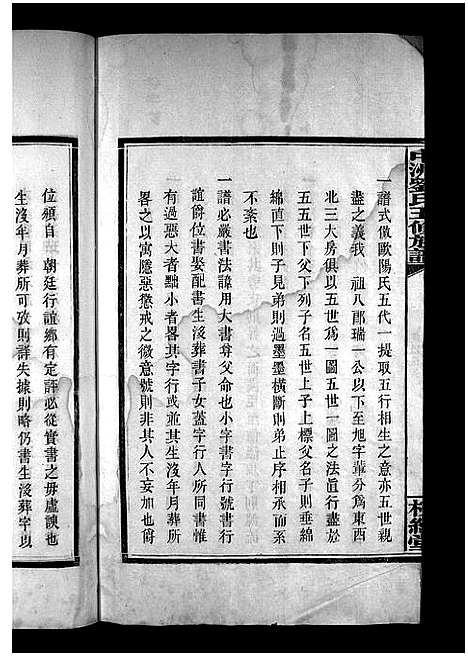 劉氏五修族譜
一譜式倣歐陽氏五代一提取五行相生之意亦五世親
盡之義我　祖八郎瑞一公以下至旭字輩分爲東西
北三大房俱以五世爲一圖五世一圖之法眞行盡於
五五世下父下列子名五世上子上標父名子則垂綿
綿直下則子見弟則過墨墨橫斷則弟止序相承而系
不紊也
一譜必嚴書法諱用大書尊父命也小字書字行號書行
誼爵位書娶配書生沒葬書子女蓋字行人所同書惟
有過惡大者黜小者畧其字行或並其生沒年月葬所
畧之以寓隱惡懲戒之微意號則非其人不妄加也爵
位頒自　朝廷行誼鄉有定評必從實書之毋虛諛也
生沒年月葬所可攷則詳失據則略仍書生沒葬字以